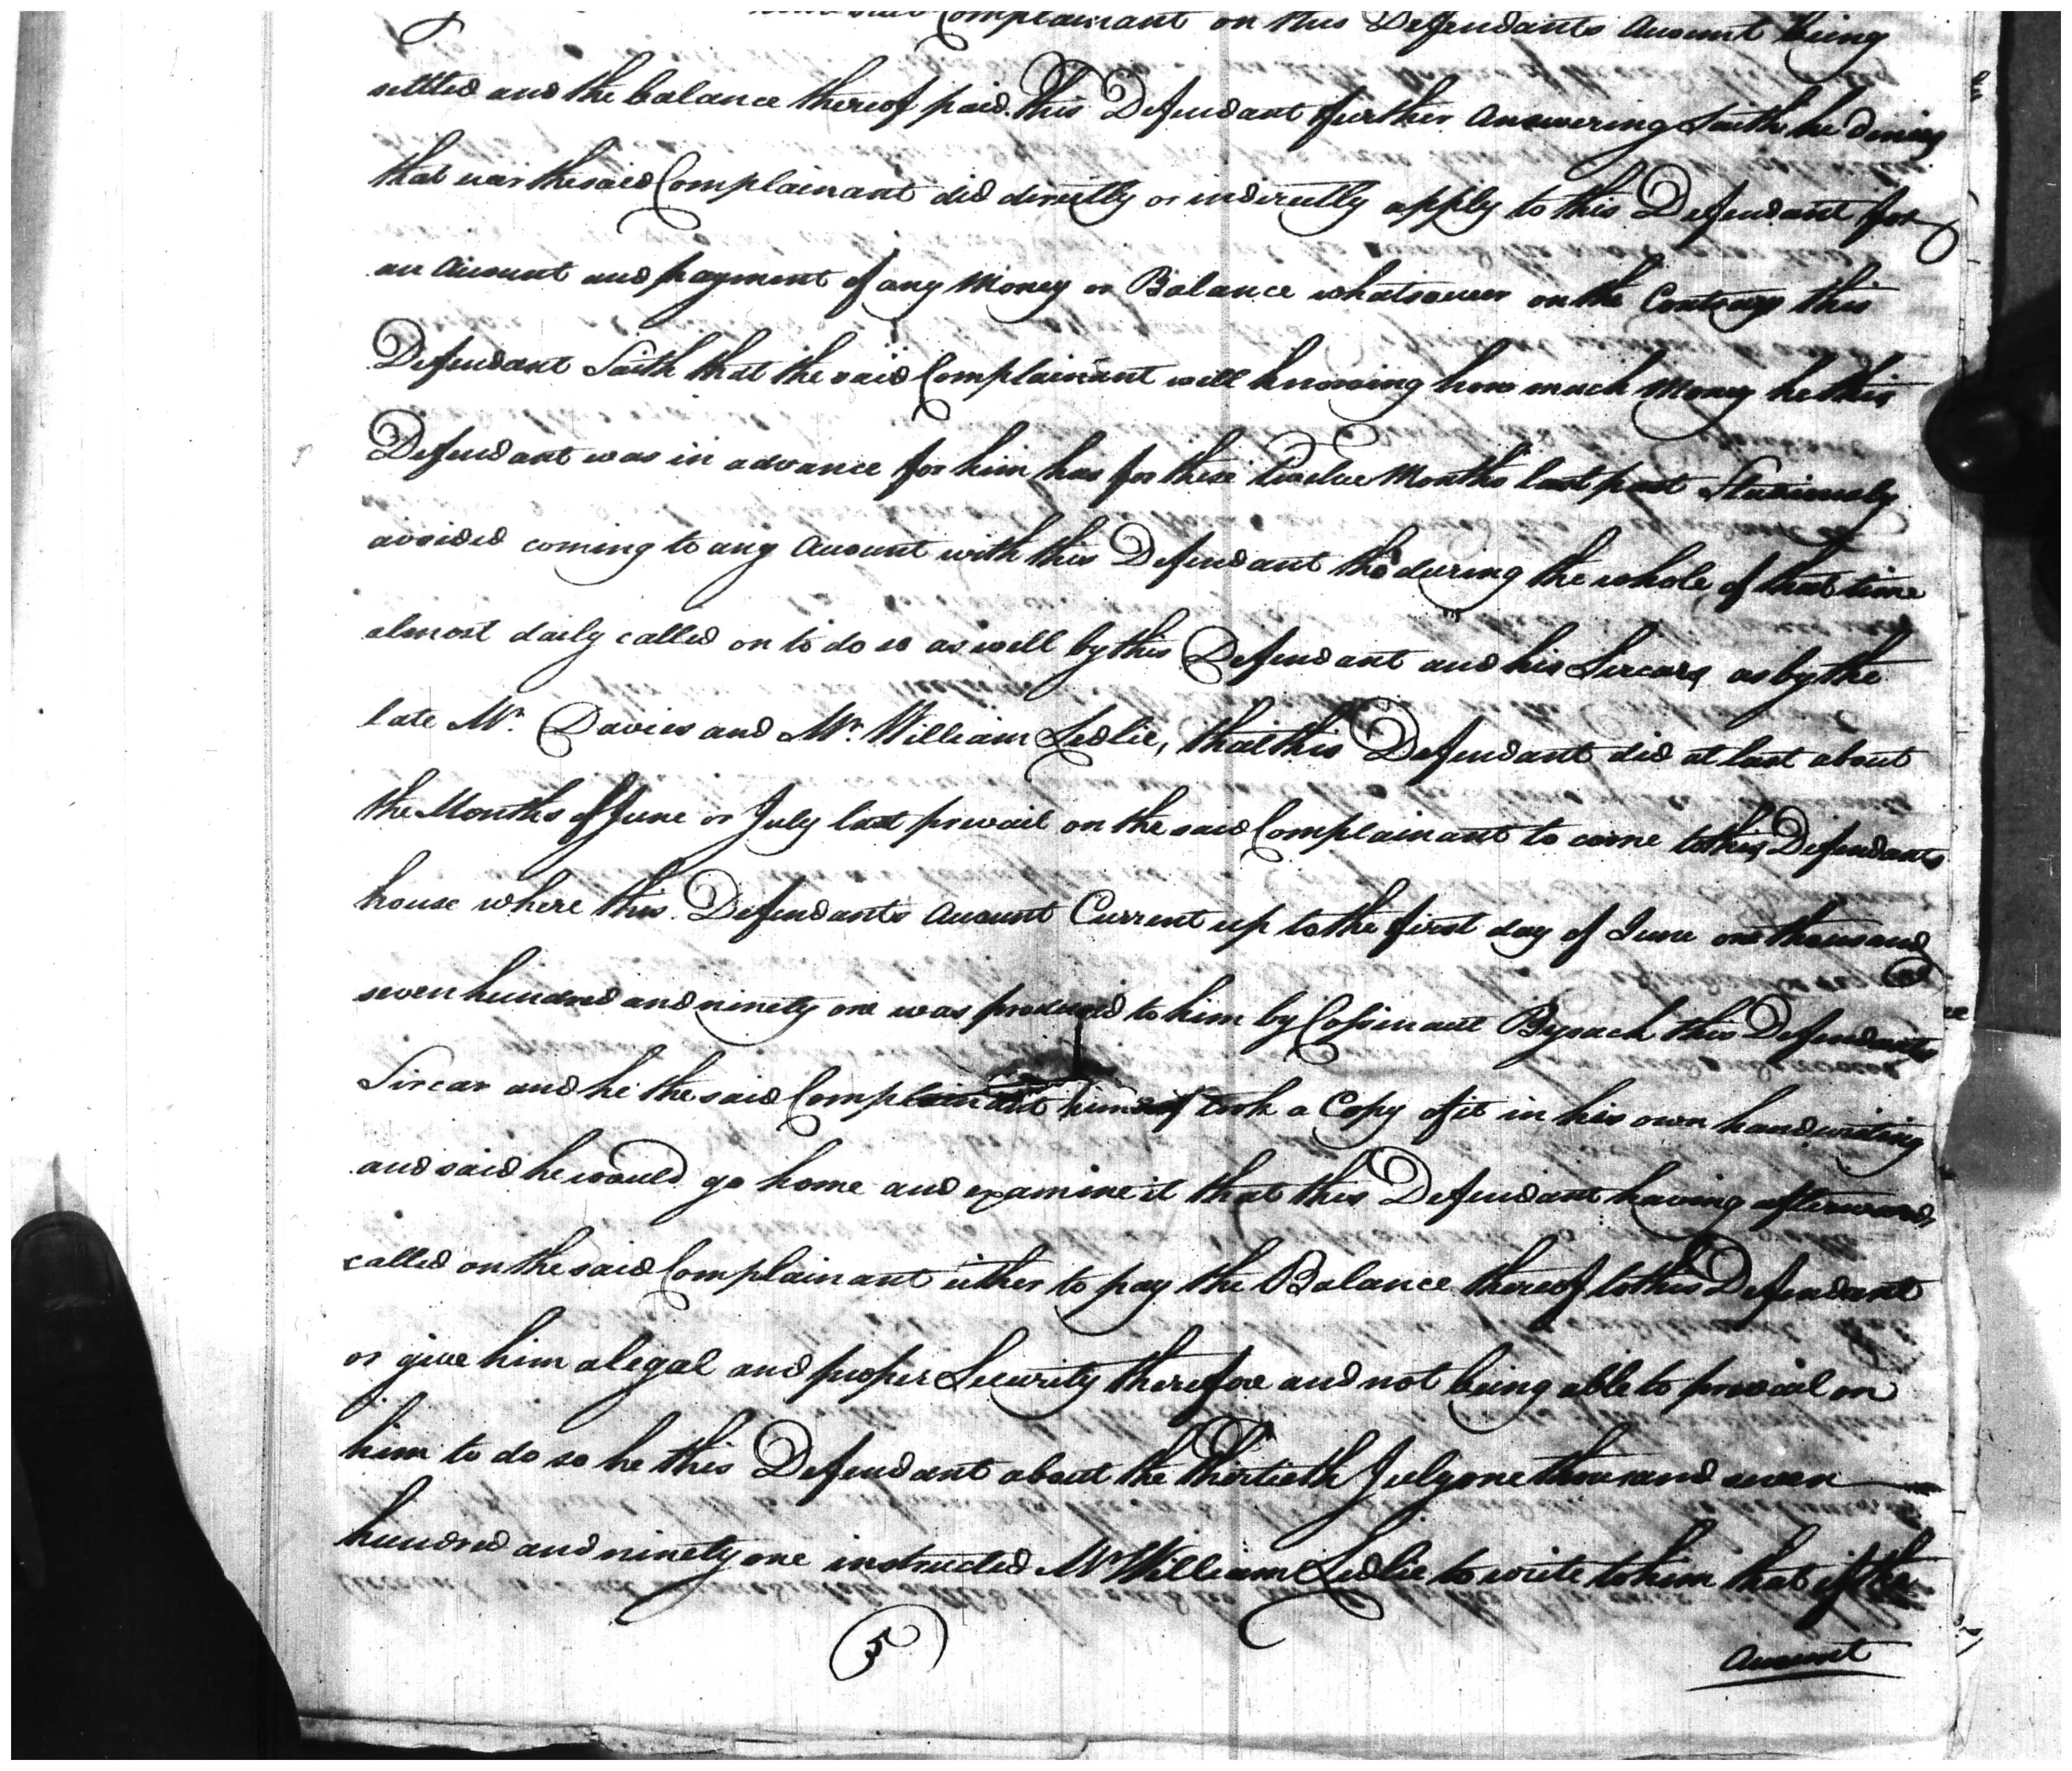 Complainant on this Defendants Account being
settled and the balance thereof paid. This Defendant further Answering Saith he denies
that ever the said Complainant did directly or indirectly apply to this Defendant for
an Account and payment of any Money or Balance whatsoever on the Contrary this
Defendant Saith that the said Complainant well knowing how much Money he this
Defendant was in advance for him has for these Twelve Months last past Studiously
avoided coming to any Account with this Defendant tho' during the whole of that time
almost daily called on to do so as well by this Defendant and his Sircars as by the
late Mr. Davies and Mr. William Ledlie, that this Defendant did at last about
the Months of June or July last prevail on the said Complainant to come to this Defendants
house where this Defendants Account Current up to the first day of June one thousand
seven hundred and ninety one was produced to him by Cossinaut Bysack this Defendants
Sircar and he the said Complainant himself took a Copy of it in his own handwriting
and said he would go home and examine it that this Defendant having afterwards
called on the said Complainant either to pay the Balance thereof to this Defendant
or give him a legal and proper Security therefore and not being able to prevail on
him to do so he this Defendant about the thirtieth July one thousand seven
hundred and ninety one instructed Mr William Ledlie to write to him that if the
5
Account